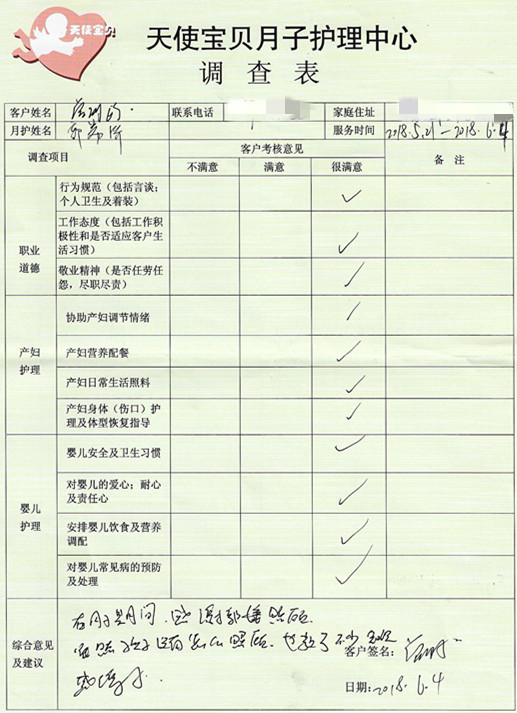 天使宝贝
天使宝贝月子护理中心
调查表
客户姓名 联系电话 家庭住址
月护姓名 服务时间 2018.5.21－2018.6.4
调查项目 客户考核意见 备注
不满意 满意 很满意
职业道德
行为规范（包括言谈；个人卫生及着装） ✓
工作态度（包括工作积极性和是否适应客户生活习惯） ✓
敬业精神（是否任劳任怨，尽职尽责） ✓
产妇护理
协助产妇调节情绪 ✓
产妇营养配餐 ✓
产妇日常生活照料 ✓
产妇身体（伤口）护理及体型恢复指导 ✓
婴儿护理
婴儿安全及卫生习惯 ✓
对婴儿的爱心；耐心及责任心 ✓
安排婴儿饮食及营养调配 ✓
对婴儿常见病的预防及处理 ✓
综合意见及建议
在月子期间，感谢 照顾
客户签名：
日期：2018.6.4